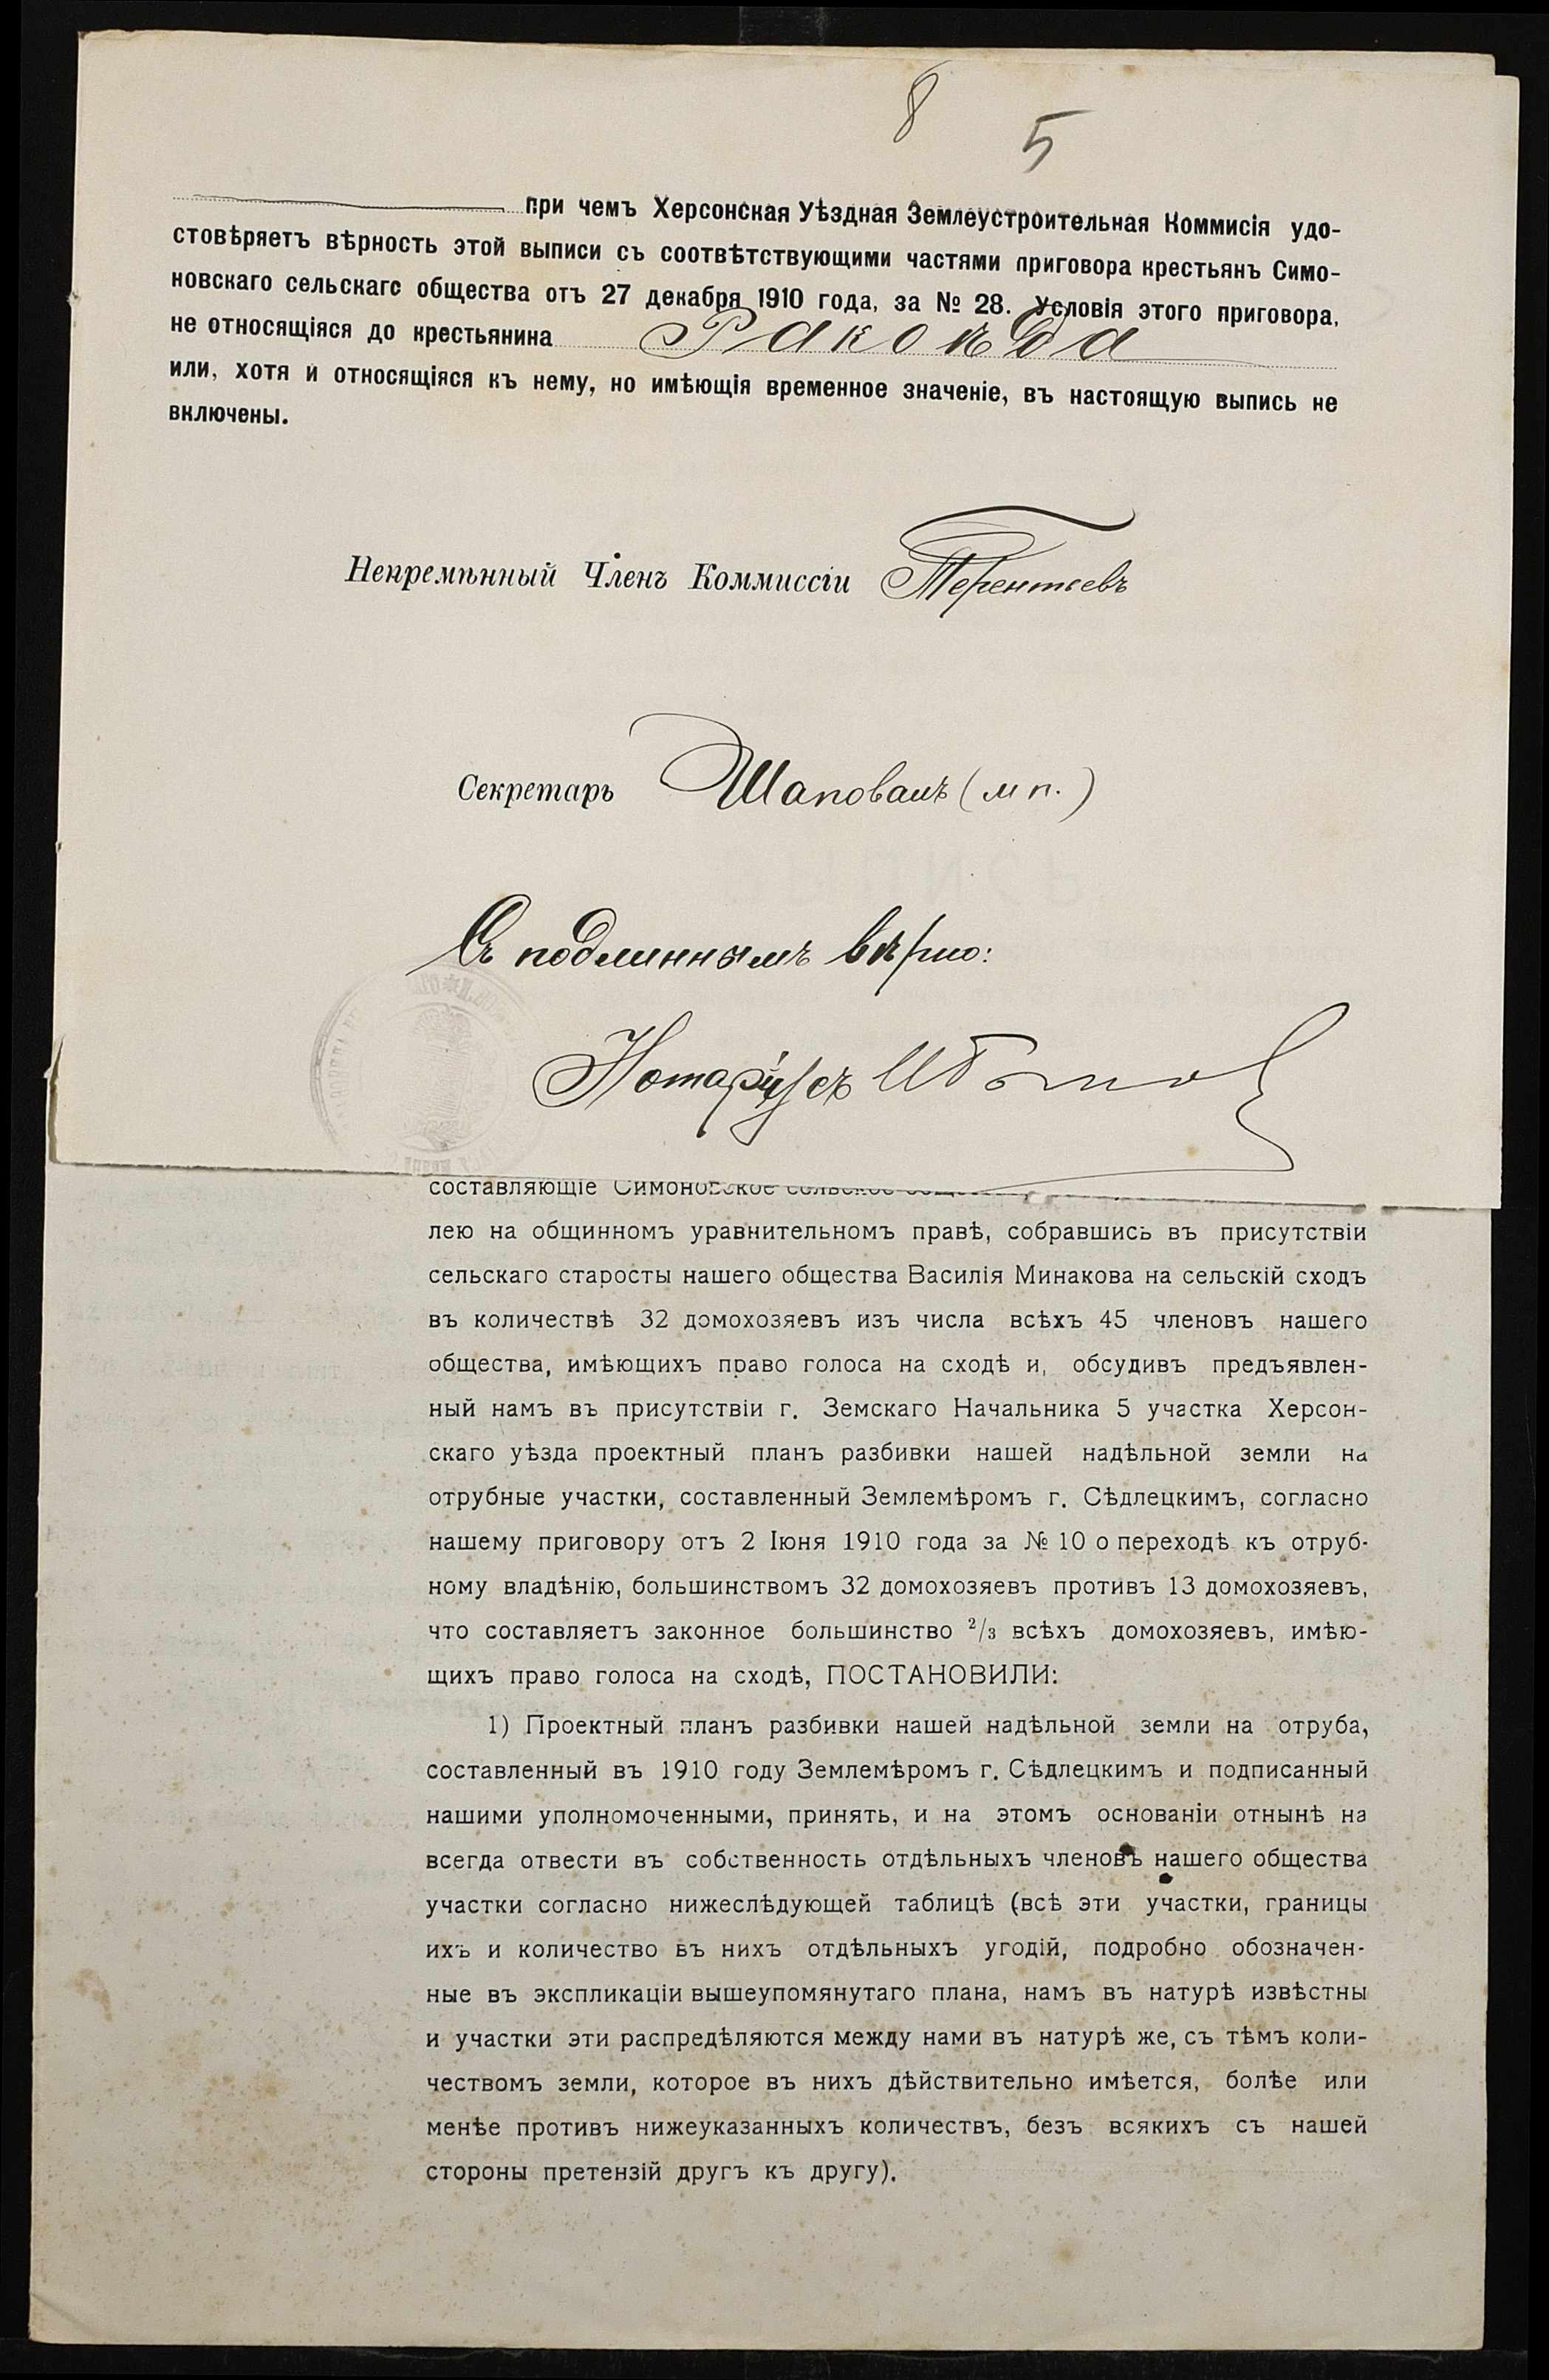 8
5
при чемъ Херсонская Уѣздная Землеустроительная Коммисія удо-
стовѣряетъ вѣрность этой выписи съ соотвѣтствующими частями приговора крестьянъ Симо-
новскаго сельскаго общества отъ 27 декабря 1910 года, за № 28. Условія этого приговора,
не относящіяся до крестьянина
или, хотя и относящіяся къ нему, но имѣющія временное значеніе, въ настоящую выпись не
включены.
Непремѣнный Членъ Коммиссіи Терентьевъ
Секретарь Шаповалъ (м п.)
Съ подлиннымъ вѣрно:
Нотаріусъ
составляющіе Симоновское сельское
лею на общинномъ уравнительномъ правѣ, собравшись въ присутствіи
сельскаго старосты нашего общества Василія Минакова на сельскій сходъ
въ количествѣ 32 домохозяевъ изъ числа всѣхъ 45 членовъ нашего
общества, имѣющихъ право голоса на сходѣ и, обсудивъ предъявлен-
ный намъ въ присутствіи г. Земскаго Начальника 5 участка Херсон-
скаго уѣзда проектный планъ разбивки нашей надѣльной земли на
отрубные участки, составленный Землемѣромъ г. Сѣдлецкимъ, согласно
нашему приговору отъ 2 Іюня 1910 года за № 10 о переходѣ къ отруб-
ному владѣнію, большинствомъ 32 домохозяевъ противъ 13 домохозяевъ,
что составляетъ законное большинство 2/3 всѣхъ домохозяевъ, имѣю-
щихъ право голоса на сходѣ, ПОСТАНОВИЛИ:
1) Проектный планъ разбивки нашей надѣльной земли на отруба,
составленный въ 1910 году Землемѣромъ г. Сѣдлецкимъ и подписанный
нашими уполномоченными, принять, и на этомъ основаніи отнынѣ на
всегда отвести въ собственность отдѣльныхъ членовъ нашего общества
участки согласно нижеслѣдующей таблицѣ (всѣ эти участки, границы
ихъ и количество въ нихъ отдѣльныхъ угодій, подробно обозначен-
ные въ экспликаціи вышеупомянутаго плана, намъ въ натурѣ извѣстны
и участки эти распредѣляются между нами въ натурѣ же, съ тѣмъ коли-
чествомъ земли, которое въ нихъ дѣйствительно имѣется, болѣе или
менѣе противъ нижеуказанныхъ количествъ, безъ всякихъ съ нашей
стороны претензій другъ къ другу).